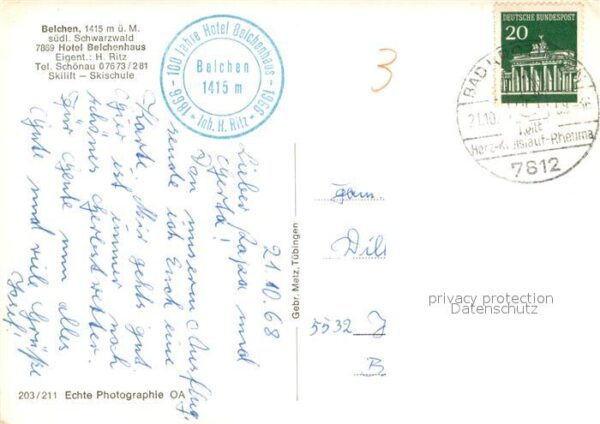 Belchen, 1415 m ü. M.
südl. Schwarzwald
7869 Hotel Belchenhaus
Eigent.: H. Ritz
Tel. Schönau 07673/281
Skilift – Skischule
100 Jahre Hotel Belchenhaus
1866 1966
Inh. H. Ritz
Belchen
1415 m
3
20
DEUTSCHE BUNDESPOST
BAD
21.10.
heilt
Herz-Kreislauf-Rheuma
7812
21.10.68
Lieber Papa und
Gerta!
Von unserm Ausflug,
sende ich Euch eine
Karte. Mir gehts gut
Hier ist immer noch
schönes Herbstwetter.
Für Heute nun alles
Gute und viele Grüße
Josef!
Gebr. Metz, Tübingen
Fam.
Dil
5532 J
B
privacy protection
Datenschutz
203/211 Echte Photographie OA